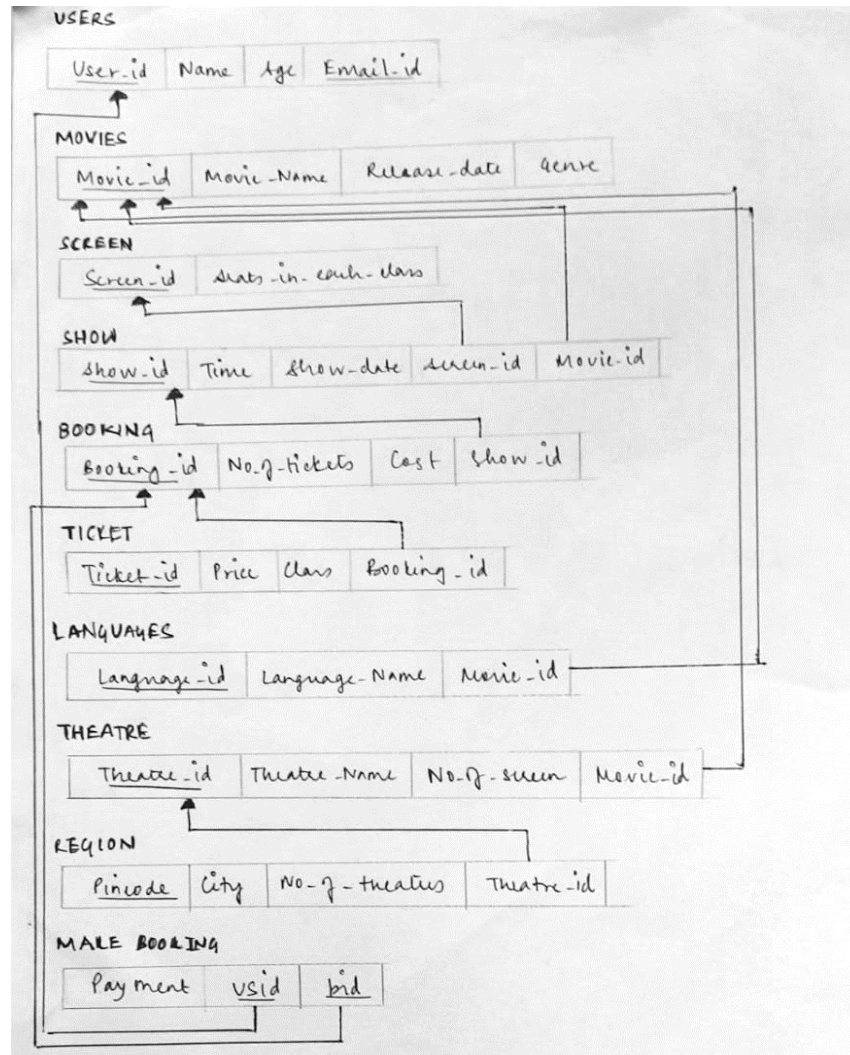 USERS
User_id Name Age Email_id
MOVIES
Movie_id Movie_Name Release_date Genre
SCREEN
Screen_id seats_in_each_class
SHOW
Show_id Time Show_date screen_id Movie_id
BOOKING
Booking_id No_of_tickets Cost Show_id
TICKET
Ticket_id Price Class Booking_id
LANGUAGES
Language_id Language_Name Movie_id
THEATRE
Theatre_id Theatre_Name No_of_screen Movie_id
REGION
Pincode City No_of_theatres Theatre_id
MAKE BOOKING
Payment usid bid